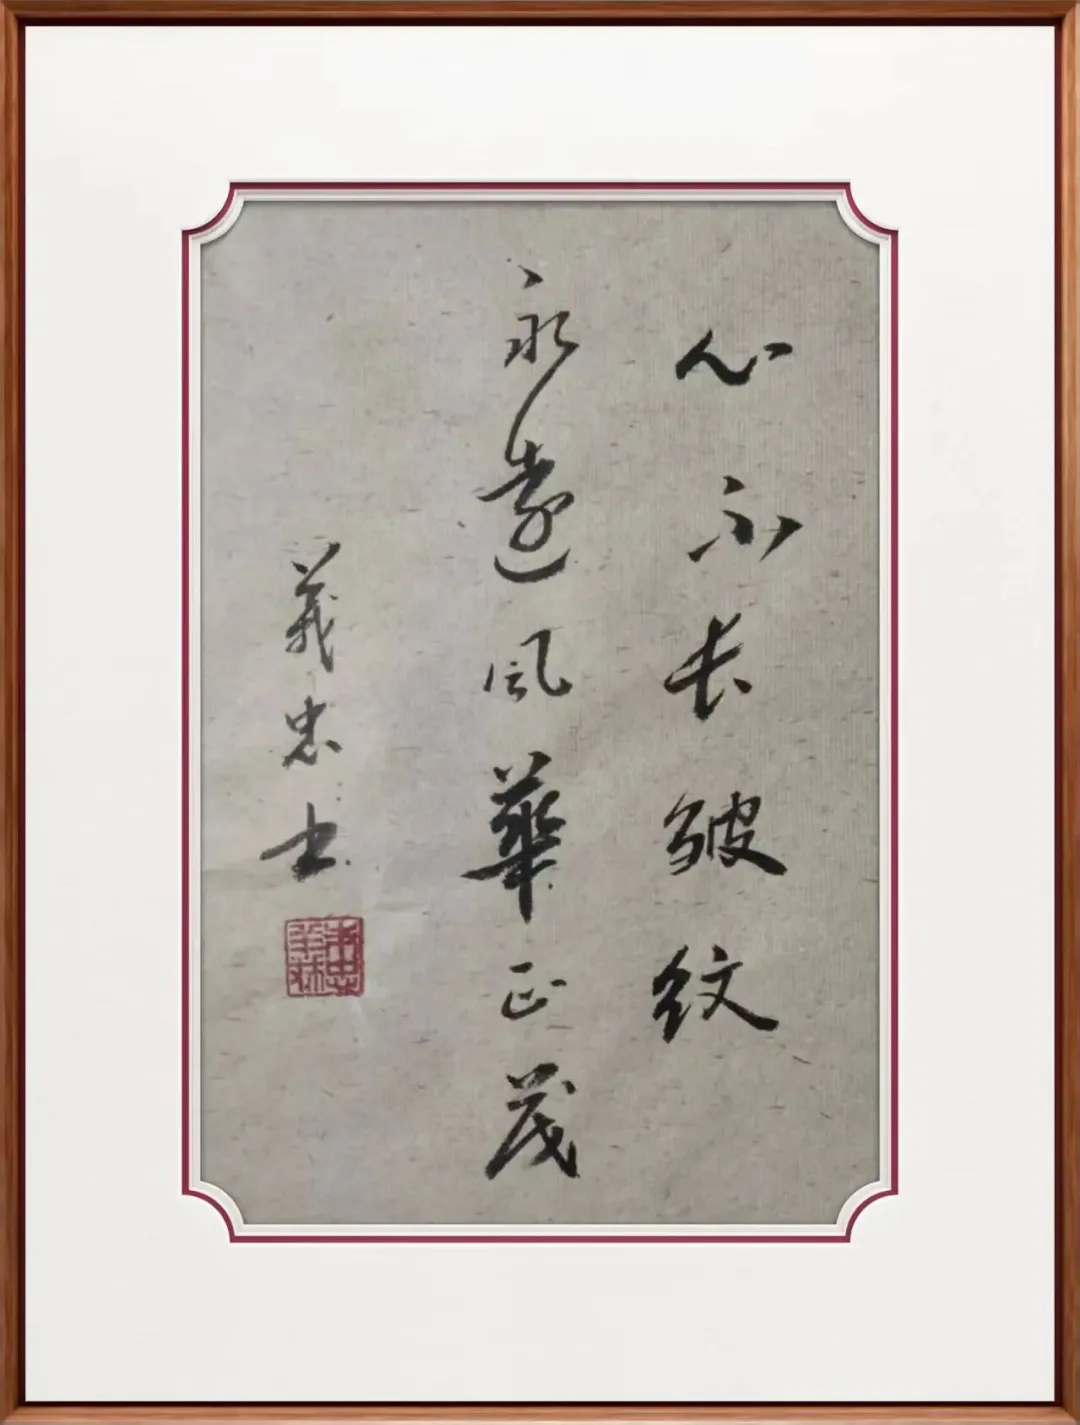 心不长皱纹
永远风華正茂
義忠书